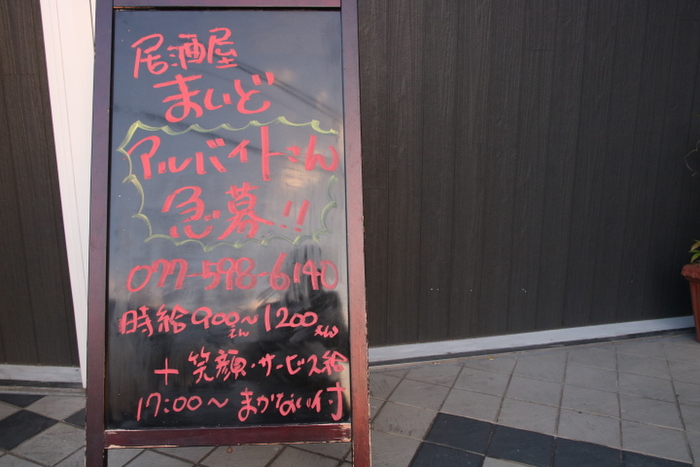 居酒屋
まいど
アルバイトさん
急募!!
077-598-6140
時給900えん～1200えん
＋笑顔・サービス給
17:00～まかない付